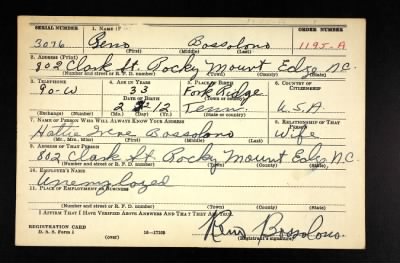 SERIAL NUMBER 1. NAME (Print) ORDER NUMBER
3076 Reno Bossolono 1195-A
(First) (Middle) (Last)
2. ADDRESS (Print)
802 Clark St. Rocky Mount Edge N.C.
(Number and street or R. F. D. number) (Town) (County) (State)
3. TELEPHONE 4. AGE IN YEARS 5. PLACE OF BIRTH 6. COUNTRY OF CITIZENSHIP
90-W 33 Fork Ridge
DATE OF BIRTH (Town or county)
2 12 Tenn. U.S.A.
(Mo.) (Day) (Yr.) (State or country)
7. NAME OF PERSON WHO WILL ALWAYS KNOW YOUR ADDRESS 8. RELATIONSHIP OF THAT PERSON
Hattie Irene Bossolono Wife
(Mr., Mrs., Miss) (First) (Middle) (Last)
9. ADDRESS OF THAT PERSON
802 Clark St. Rocky Mount Edge N.C.
(Number and street or R. F. D. number) (Town) (County) (State)
10. EMPLOYER'S NAME
Unemployed
11. PLACE OF EMPLOYMENT OR BUSINESS
(Number and street or R. F. D. number) (Town) (County) (State)
I AFFIRM THAT I HAVE VERIFIED ABOVE ANSWERS AND THAT THEY ARE TRUE.
REGISTRATION CARD
D. S. S. Form 1 (over) 16-17105
Reno Bossolono
(Registrant's signature)